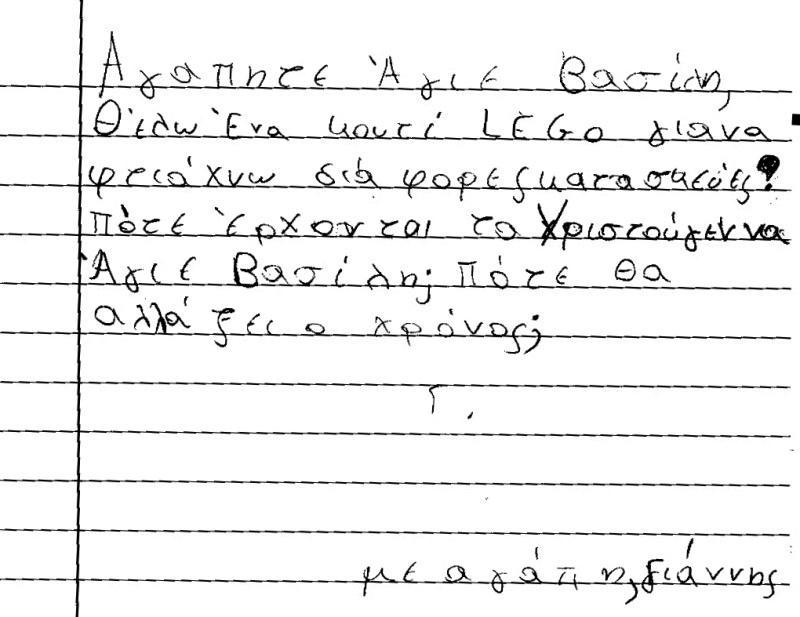 Αγαπητε Άγιε Βασίλη,
Θέλω Ένα κουτί LEGO γιανα
φτιάχνω διά φορες κατασκεύές!
Πότε Έρχονται το Χριστούγεννα
Άγιε Βασίλη; Πότε θα
αλλάξει ο χρόνος;
Γ.
με αγάπη, Γιάννης